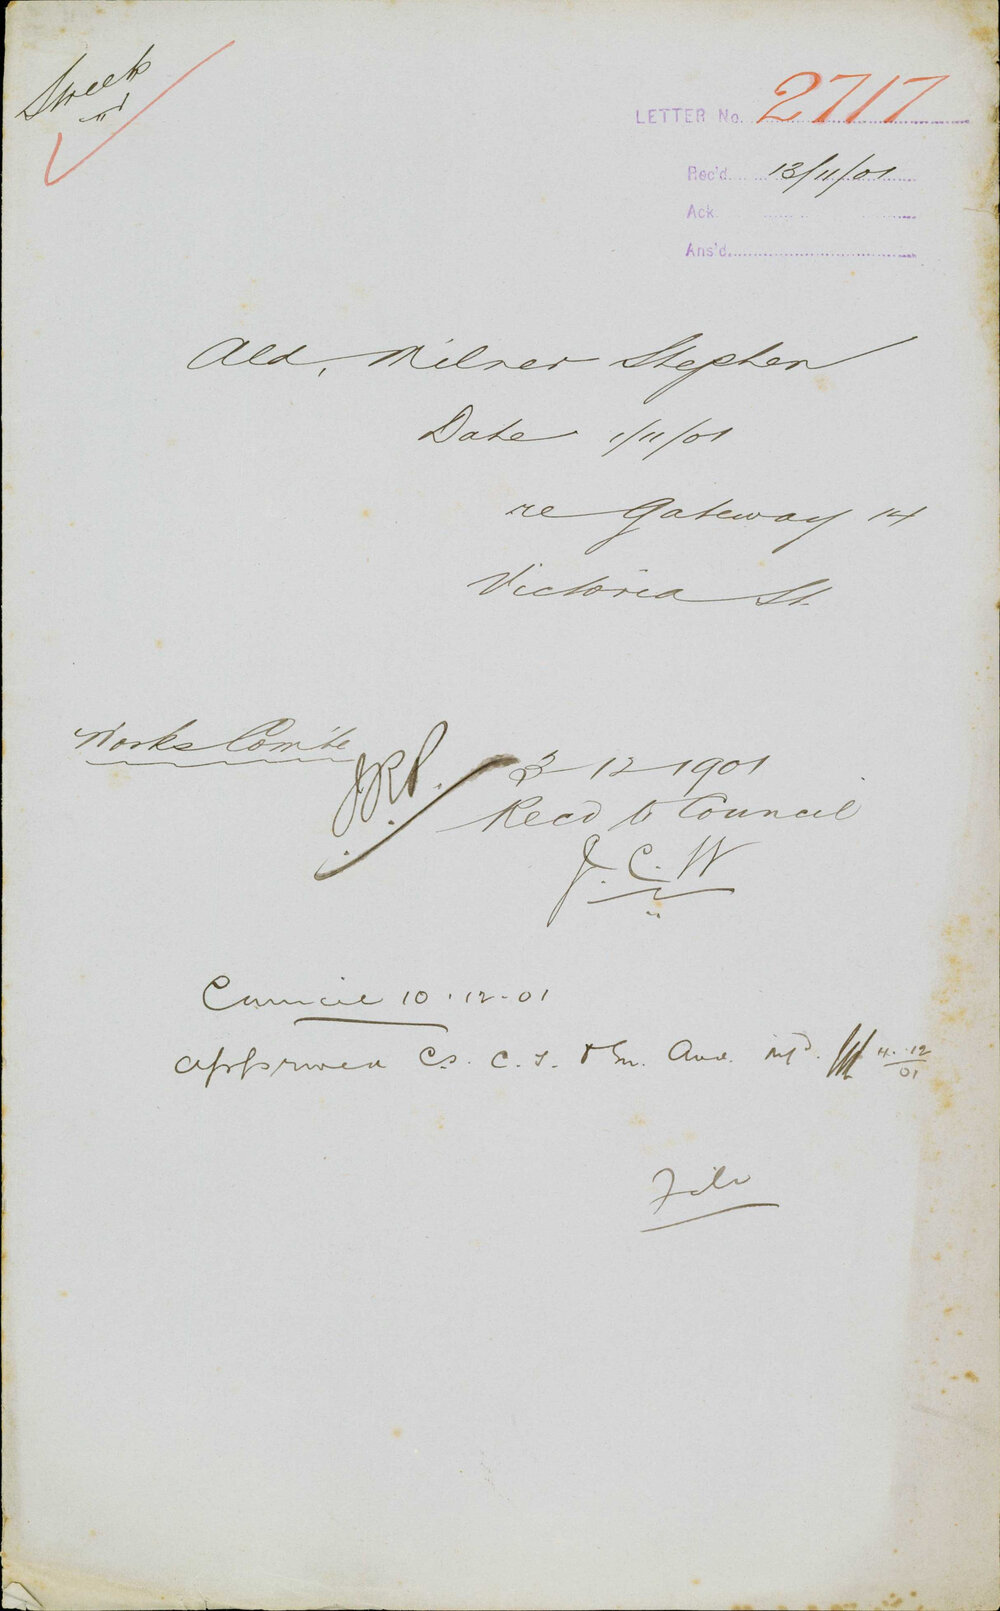 Street
LETTER No. 2717
Rec'd. 13/11/01
Ack
Ans'd.
Ald, Milner Stephen
Date 1/11/01
re Gateway 14
Victoria St.
Works Com'te
J.R.P.
3-12-1901
Recd to Council
J.C.W
Council 10.12.01
approved Cs. C. S. Ald. 4.12/01
File